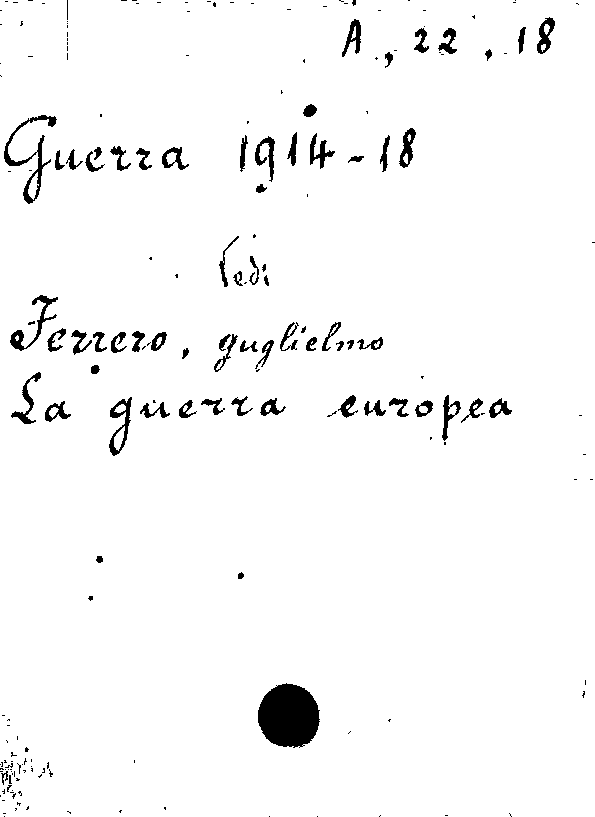 A, 22, 18
Guerra 1914-18
Vedi
Ferrero, guglielmo
La guerra europea